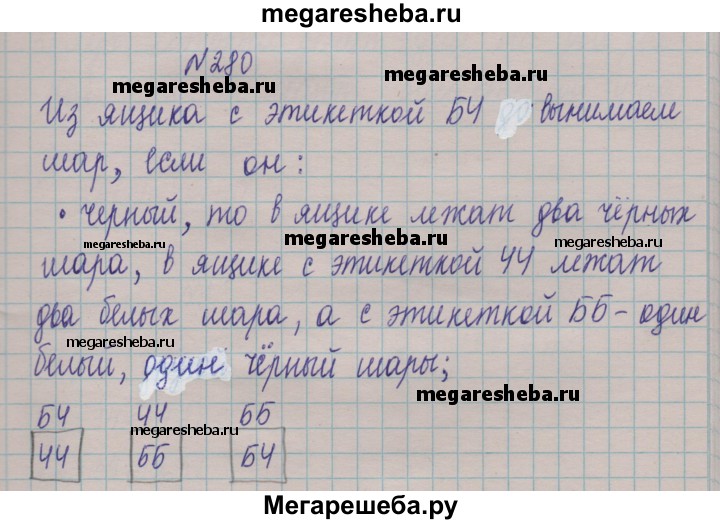 megaresheba.ru
№280
megaresheba.ru
megaresheba.ru
Из ящика с этикеткой БЧ вынимаем
шар, если он:
• черный, то в ящике лежат два чёрных
megaresheba.ru
megaresheba.ru
megaresheba.ru
шара, в ящике с этикеткой ЧЧ лежат
два белых шара, а с этикеткой ББ - один
megaresheba.ru
белый, один чёрный шары;
megaresheba.ru
БЧ ЧЧ ББ
megaresheba.ru
ЧЧ ББ БЧ
Мегарешеба.ру